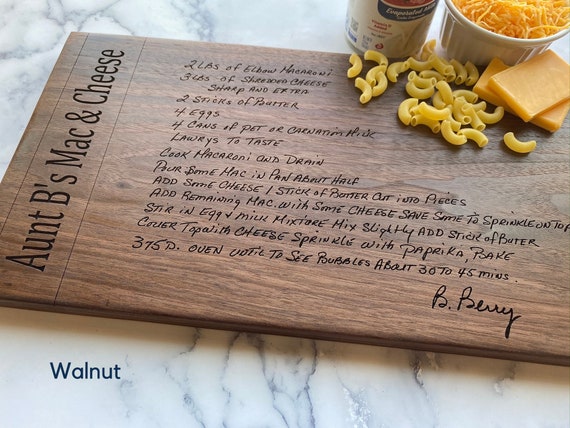 Evaporated Milk
Aunt B's Mac & Cheese
2 LBS OF ELBOW MACARONI
3 LBS OF SHREDDED CHEESE
SHARP AND EXTRA
2 STICKS OF BUTTER
4 EGGS
4 CANS OF PET OR CARNATION MILK
LAWRYS TO TASTE
COOK MACARONI AND DRAIN
POUR SOME MAC IN PAN ABOUT HALF
ADD SOME CHEESE 1 STICK OF BUTTER CUT INTO PIECES
ADD REMAINING MAC. WITH SOME CHEESE SAVE SOME TO SPRINKLE ON TOP
STIR IN EGG & MILK MIXTURE MIX SLIGHTLY ADD STICK OF BUTER
COVER TOP WITH CHEESE SPRINKLE WITH PAPRIKA, BAKE
375 D. OVEN UNTIL TO SEE BUBBLES ABOUT 30 TO 45 MINS.
B. Berry
Walnut